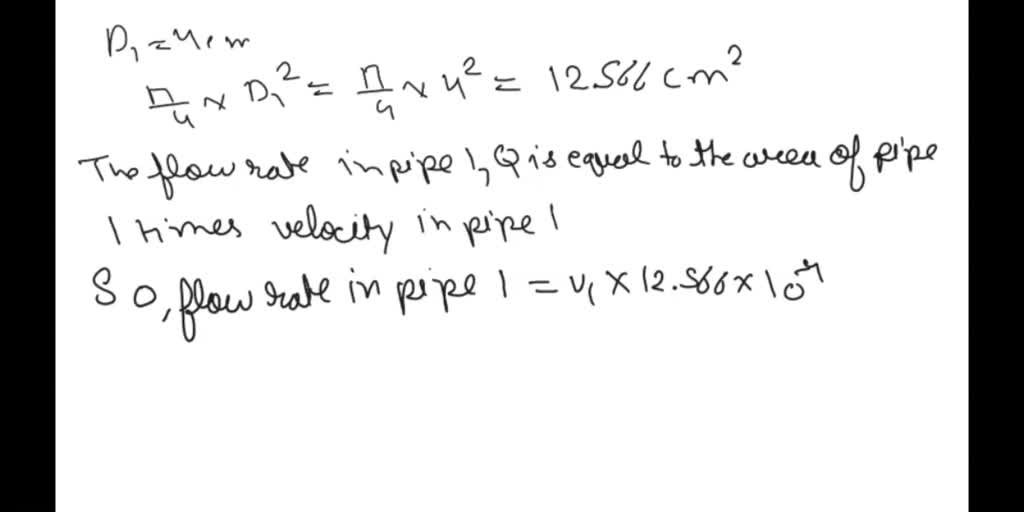 D₁ = 4cm
π/4 × D₁² = π/4 × 4² = 12.566 cm²
The flow rate in pipe 1, Q is equal to the area of pipe
1 times velocity in pipe 1
So, flow rate in pipe 1 = v₁ × 12.566 × 10⁻⁴